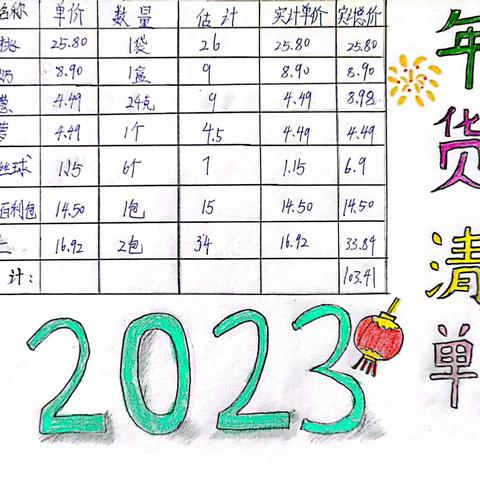 名称 单价 数量 估计 实计单价 实计总价
桃 25.80 1袋 26 25.80 25.80
奶 8.90 1盒 9 8.90 8.90
葱 4.49 24克 9 4.49 8.98
萝 4.49 1个 4.5 4.49 4.49
丝球 1.15 6个 7 1.15 6.9
百利包 14.50 1包 15 14.50 14.50
16.92 2包 34 16.92 33.84
计: 103.41
年货清单
2023